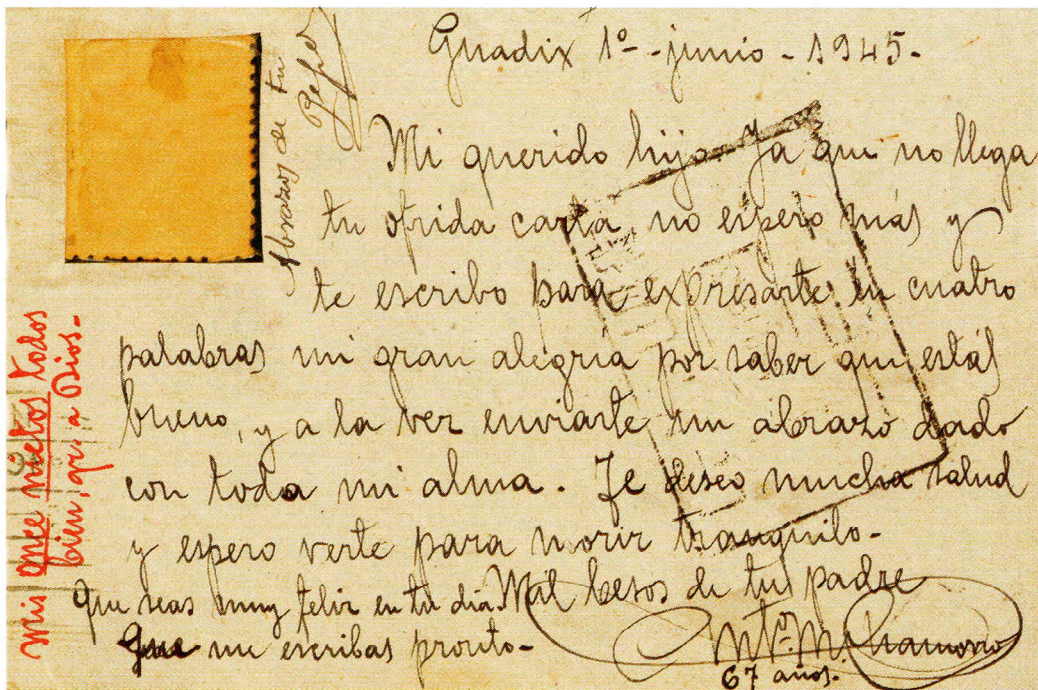 Guadix 1º - junio - 1945.
Mi querido hijo: Ya que no llega
tu ofrida carta, no espero más y
te escribo para expresarte en cuatro
palabras mi gran alegría por saber que estás
bueno, y a la vez enviarte un abrazo dado
con toda mi alma. Te deseo mucha salud
y espero verte para morir tranquilo.-
Que seas muy feliz en tu día. Mil besos de tu padre
Que me escribas pronto-
Mº. M. Chamorro
67 años.
Abrazos de tu
Pepe
mis once nietos todos
bien, gra a Dios-